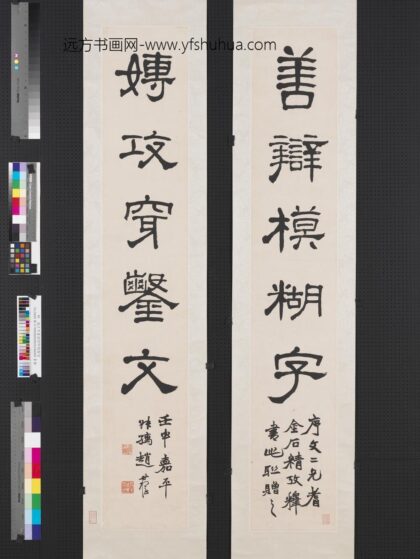 远方书画网-www.yfshuhua.com
善辯模糊字
序文二兄耆
金石精攷釋
書此聯贈之
嫥攻穿鑿文
壬申嘉平
叔孺趙